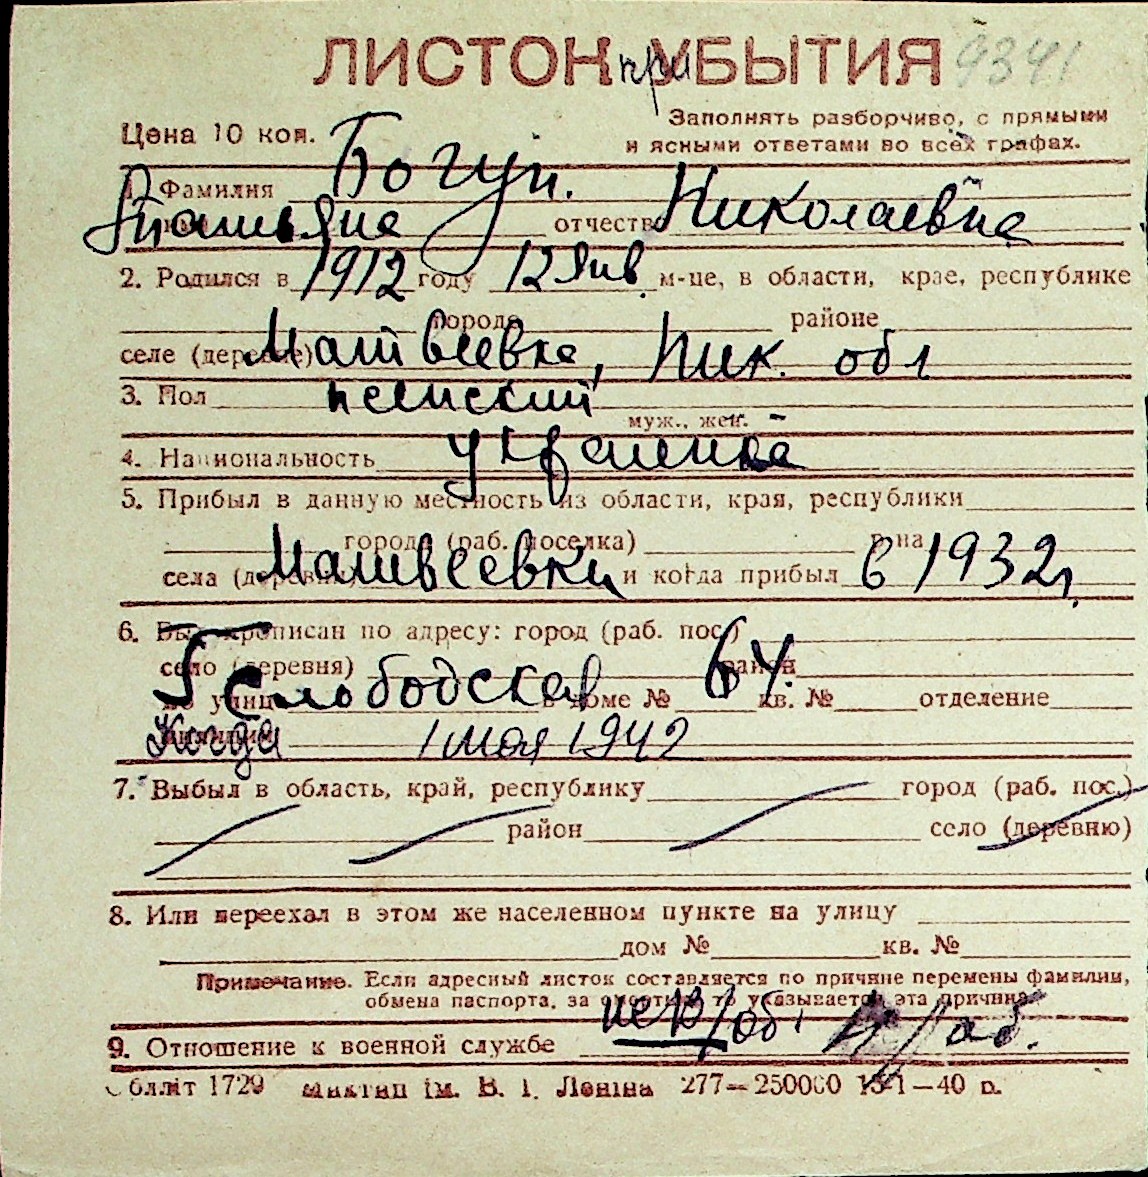 ЛИСТОК при УБЫТИЯ 9341
Цена 10 коп.
Заполнять разборчиво, с прямыми
и ясными ответами во всех графах.
1. Фамилия Богун.
Татьяна отчество Николаевна
2. Родился в 1912 году 12 Янв. м-це, в области, крае, республике
города районе
селе (деревне) Матвеевка, Ник. обл
3. Пол женский
муж., жен.
4. Национальность украинка
5. Прибыл в данную местность из области, края, республики
города (раб. поселка) района
села (деревни) Матвеевки и когда прибыл в 1932 г.
6. Был прописан по адресу: город (раб. пос.)
село (деревня) район
по улице 5 Слободская в доме № 64. кв. № отделение
Когда 1 мая 1942
7. Выбыл в область, край, республику город (раб. пос.)
район село (деревню)
8. Или переехал в этом же населенном пункте на улицу
дом № кв. №
Примечание. Если адресный листок составляется по причине перемены фамилии,
обмена паспорта, за смертью, то указывается эта причина.
9. Отношение к военной службе нев/об.
Обллiт 1729 iм. В. I. Ленiна 277—250000 13-1—40 р.